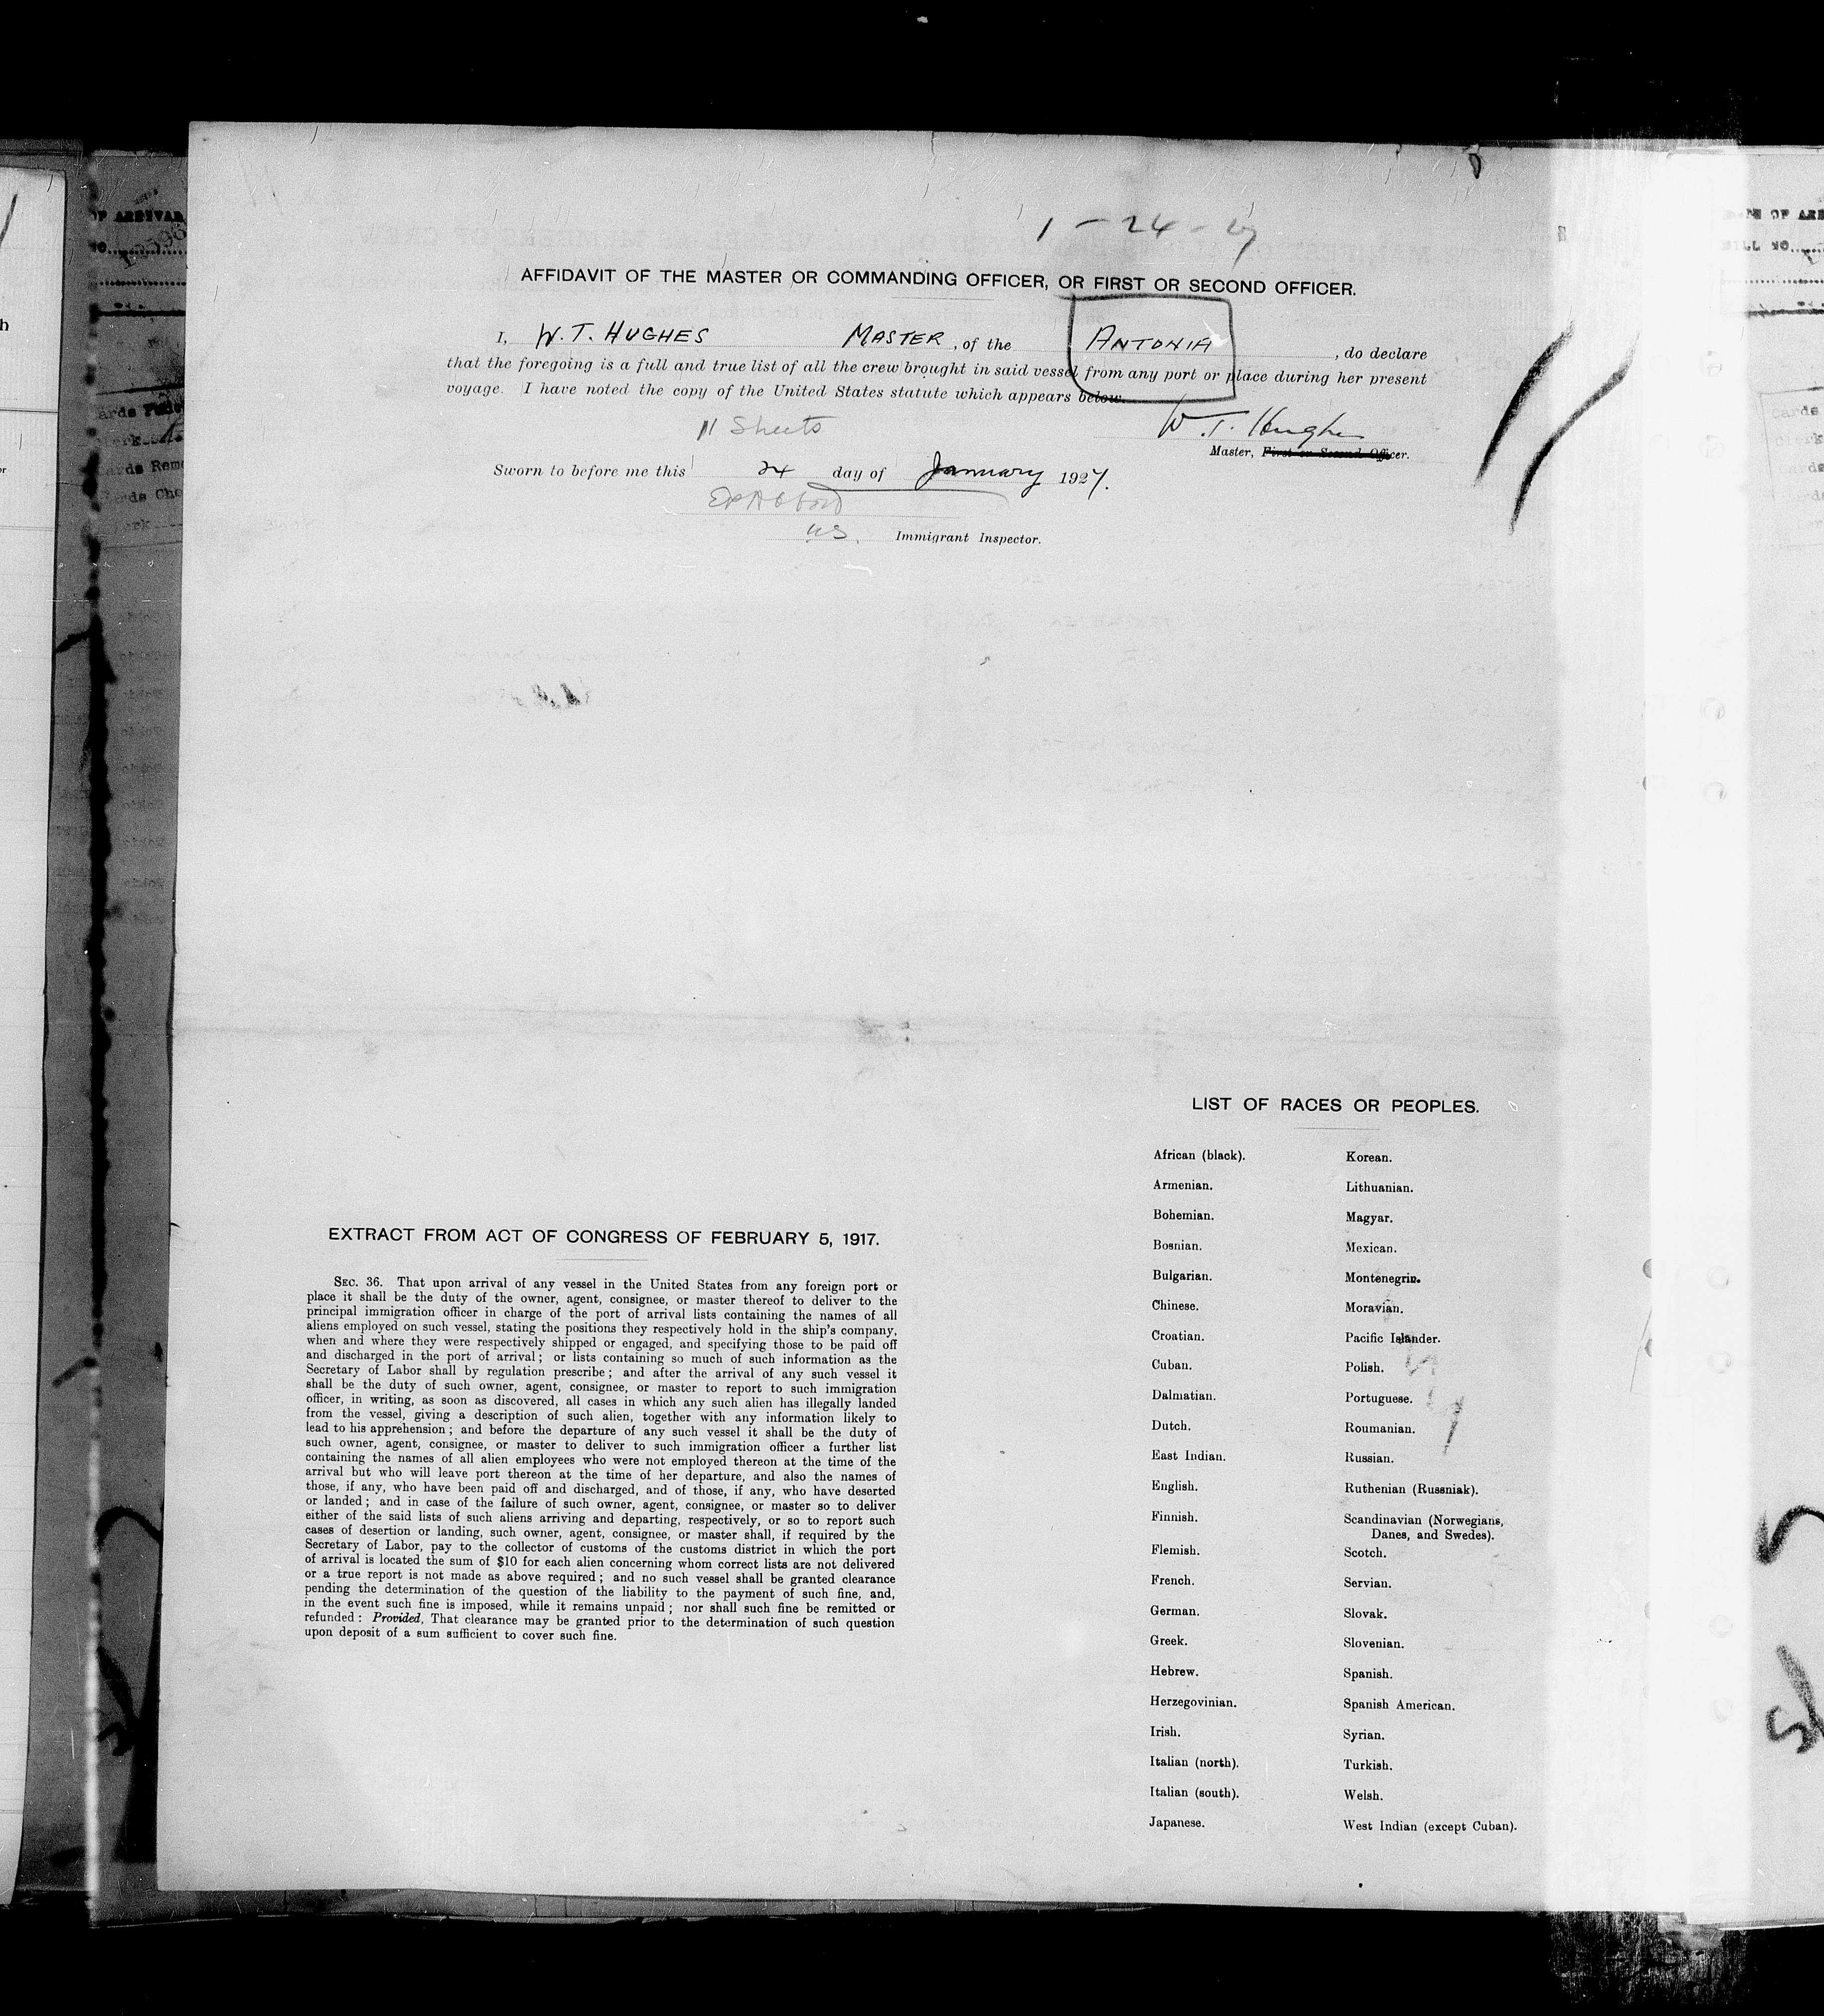 1-24-27
AFFIDAVIT OF THE MASTER OR COMMANDING OFFICER, OR FIRST OR SECOND OFFICER.
I, W. T. HUGHES MASTER, of the ANTONIA, do declare
that the foregoing is a full and true list of all the crew brought in said vessel from any port or place during her present
voyage. I have noted the copy of the United States statute which appears below.
11 Sheets
W. T. Hughes
Master, First or Second Officer.
Sworn to before me this 24 day of January 1927.
US. Immigrant Inspector.
LIST OF RACES OR PEOPLES.
African (black). Korean.
Armenian. Lithuanian.
Bohemian. Magyar.
Bosnian. Mexican.
Bulgarian. Montenegrin.
Chinese. Moravian.
Croatian. Pacific Islander.
Cuban. Polish.
Dalmatian. Portuguese.
Dutch. Roumanian.
East Indian. Russian.
English. Ruthenian (Russniak).
Finnish. Scandinavian (Norwegians,
Danes, and Swedes).
Flemish. Scotch.
French. Servian.
German. Slovak.
Greek. Slovenian.
Hebrew. Spanish.
Herzegovinian. Spanish American.
Irish. Syrian.
Italian (north). Turkish.
Italian (south). Welsh.
Japanese. West Indian (except Cuban).
EXTRACT FROM ACT OF CONGRESS OF FEBRUARY 5, 1917.
SEC. 36. That upon arrival of any vessel in the United States from any foreign port or
place it shall be the duty of the owner, agent, consignee, or master thereof to deliver to the
principal immigration officer in charge of the port of arrival lists containing the names of all
aliens employed on such vessel, stating the positions they respectively hold in the ship's company,
when and where they were respectively shipped or engaged, and specifying those to be paid off
and discharged in the port of arrival; or lists containing so much of such information as the
Secretary of Labor shall by regulation prescribe; and after the arrival of any such vessel it
shall be the duty of such owner, agent, consignee, or master to report to such immigration
officer, in writing, as soon as discovered, all cases in which any such alien has illegally landed
from the vessel, giving a description of such alien, together with any information likely to
lead to his apprehension; and before the departure of any such vessel it shall be the duty of
such owner, agent, consignee, or master to deliver to such immigration officer a further list
containing the names of all alien employees who were not employed thereon at the time of the
arrival but who will leave port thereon at the time of her departure, and also the names of
those, if any, who have been paid off and discharged, and of those, if any, who have deserted
or landed; and in case of the failure of such owner, agent, consignee, or master so to deliver
either of the said lists of such aliens arriving and departing, respectively, or so to report such
cases of desertion or landing, such owner, agent, consignee, or master shall, if required by the
Secretary of Labor, pay to the collector of customs of the customs district in which the port
of arrival is located the sum of $10 for each alien concerning whom correct lists are not delivered
or a true report is not made as above required; and no such vessel shall be granted clearance
pending the determination of the question of the liability to the payment of such fine, and,
in the event such fine is imposed, while it remains unpaid; nor shall such fine be remitted or
refunded: Provided, That clearance may be granted prior to the determination of such question
upon deposit of a sum sufficient to cover such fine.